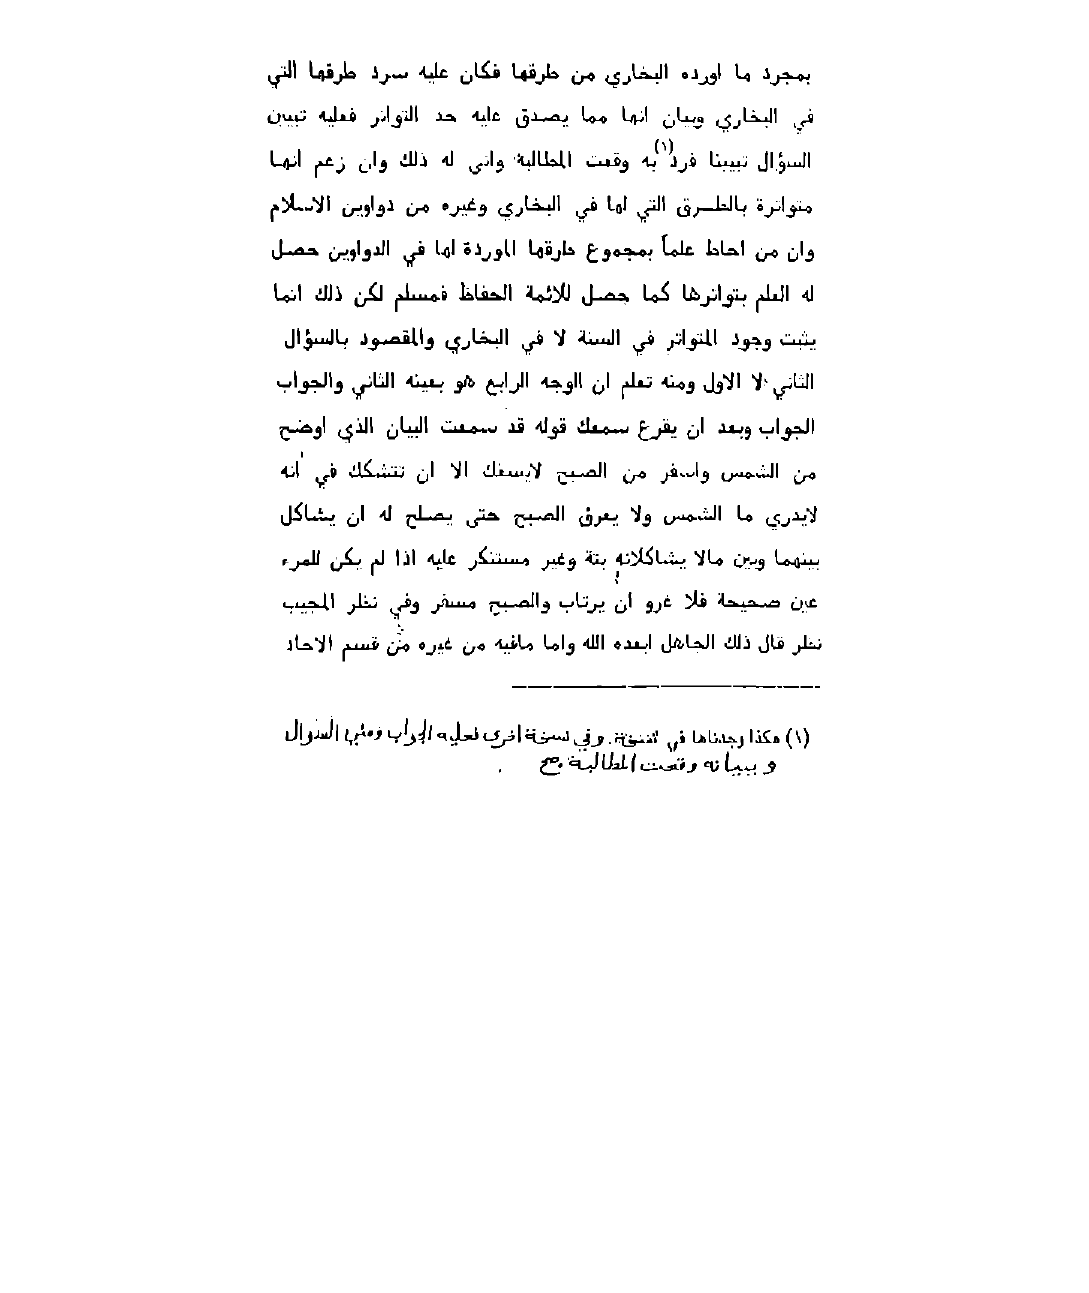 بمجرد ما اورده البخاري من طرقها فكان عليه سرد طرقها التي
في البخاري وبيان انها مما يصدق عليه حد التواتر فعليه تبيين
السؤال تبيينا فرد(١) به وقعت المطالبة واني له ذلك وان زعم انها
متواترة بالطرق التي لها في البخاري وغيره من دواوين الاسلام
وان من احاط علماً بمجموع طرقها الموردة لها في الدواوين حصل
له العلم بتواترها كما حصل للائمة الحفاظ فمسلم لكن ذلك انما
يثبت وجود المتواتر في السنة لا في البخاري والمقصود بالسؤال
الثاني لا الاول ومنه تعلم ان الوجه الرابع هو بعينه الثاني والجواب
الجواب وبعد ان يقرع سمعك قوله قد سمعت البيان الذي اوضح
من الشمس واسفر من الصبح لايسعك الا ان تتشكك في أنه
لايدري ما الشمس ولا يعرف الصبح حتى يصلح له ان يشاكل
بينهما وبين مالا يشاكلانه بتة وغير مستنكر عليه اذا لم يكن للمرء
عين صحيحة فلا غرو أن يرتاب والصبح مسفر وفي نظر المجيب
نظر قال ذلك الجاهل ابعده الله واما مافيه من غيره من قسم الاحاد
(١) هكذا وجدناها في نسخة. وفي نسخة اخرى فعليه الجواب ومتى السؤال
و ببيانه وقعت المطالبة صح